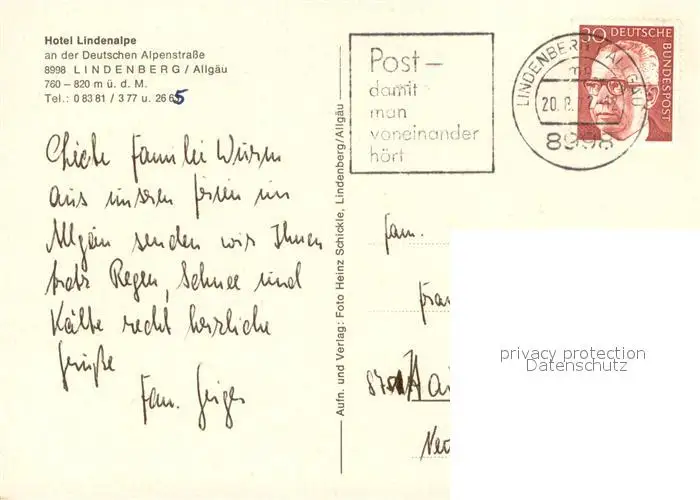 Hotel Lindenalpe
an der Deutschen Alpenstraße
8998 LINDENBERG / Allgäu
760 – 820 m ü. d. M.
Tel.: 0 83 81 / 3 77 u. 26 65
Liebe Familie Wurm
aus unseren Ferien im
Allgäu senden wir Ihnen
trotz Regen, Schnee und
Kälte recht herzliche
Grüße
Fam. Geiger
Aufn. und Verlag: Foto Heinz Schickle, Lindenberg/Allgäu
Post –
damit
man
voneinander
hört
LINDENBERG ALLGÄU
20. 8.
8998
30 DEUTSCHE
BUNDESPOST
Fam.
privacy protection
Datenschutz